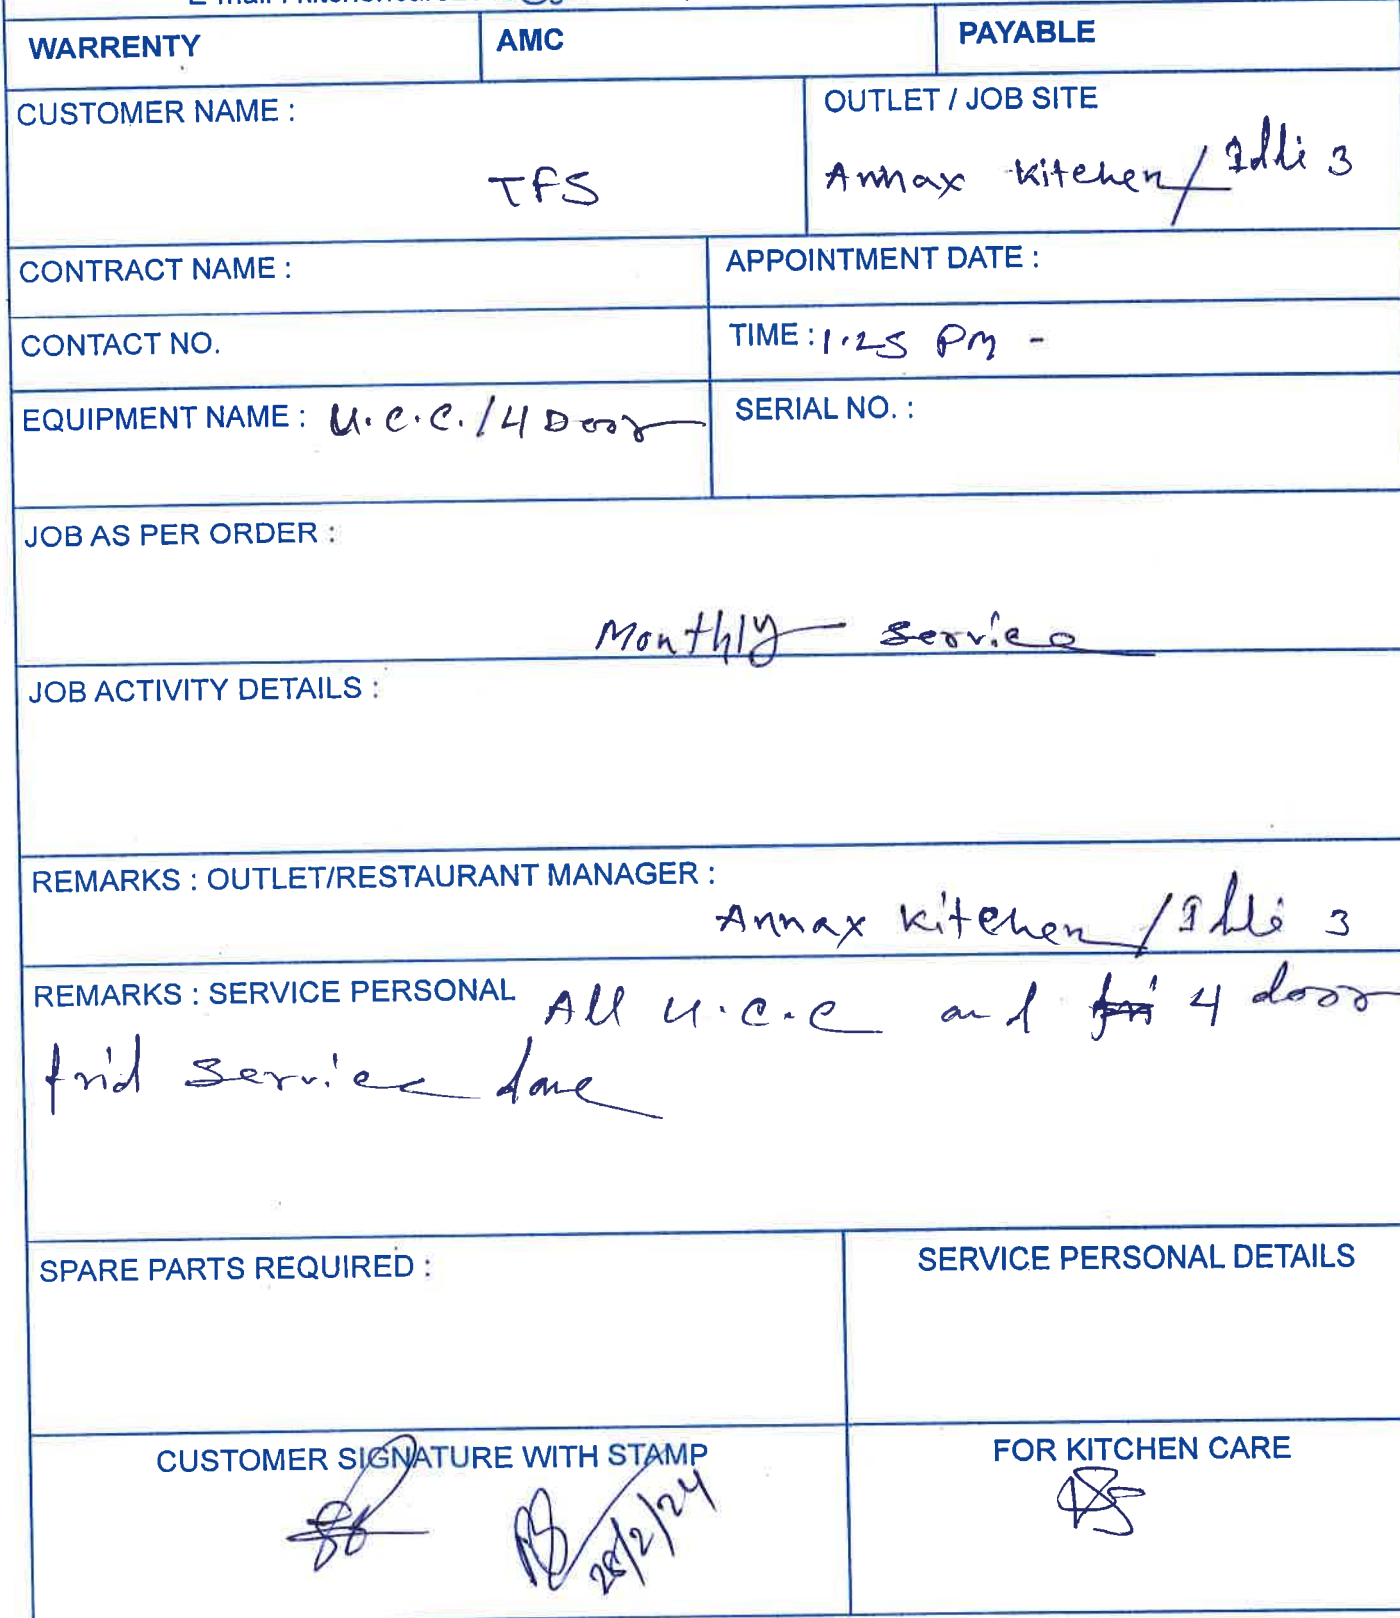 WARRENTY AMC PAYABLE
CUSTOMER NAME : OUTLET / JOB SITE
TFS Annax Kitchen / Idli 3
CONTRACT NAME : APPOINTMENT DATE :
CONTACT NO. TIME : 1.25 PM -
EQUIPMENT NAME : U.C.C. / 4 Door SERIAL NO. :
JOB AS PER ORDER :
Monthly Service
JOB ACTIVITY DETAILS :
REMARKS : OUTLET/RESTAURANT MANAGER :
Annax Kitchen / Idli 3
REMARKS : SERVICE PERSONAL All U.C.C and 4 door
frid service done
SPARE PARTS REQUIRED : SERVICE PERSONAL DETAILS
CUSTOMER SIGNATURE WITH STAMP FOR KITCHEN CARE
28/2/24